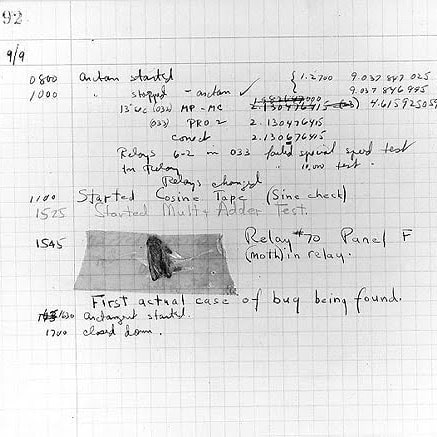 92
9/9
0800 antan started { 1.2700 9.037 847 025
1000 " stopped - antan ✓ 9.037 846 995
13"uc (032) MP - MC 2.130476415 4.615925059
(033) PRO 2 2.130476415
conect 2.130676415
Relays 6-2 in 033 failed special speed test
in Relay " 10.000 test .
Relays changed
1100 Started Cosine Tape (Sine check)
1525 Started Mult + Adder Test.
1545 Relay #70 Panel F
(moth) in relay.
First actual case of bug being found.
1630 antangent started.
1700 closed down.